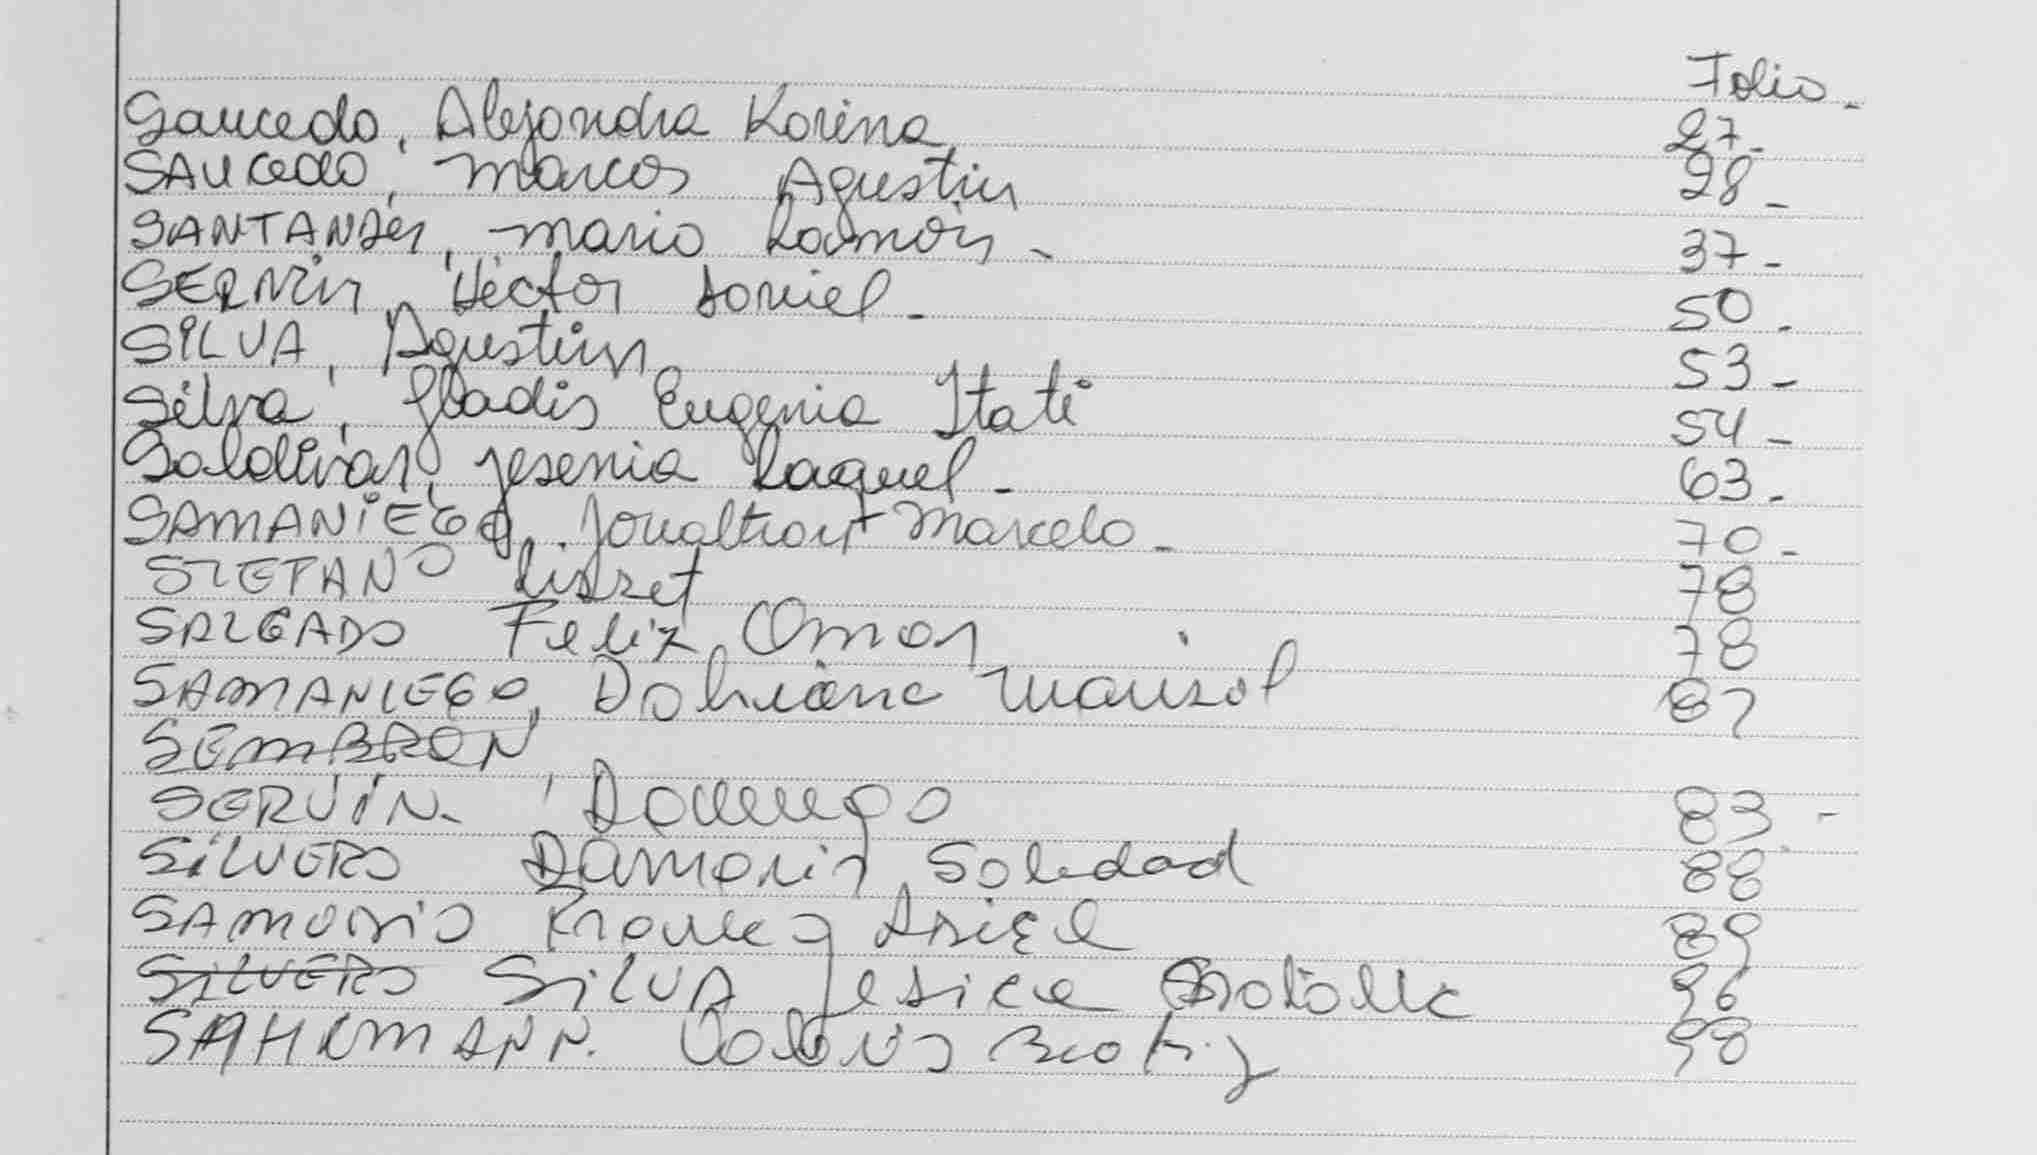 Folio -
Saucedo, Alejandra Korina 27-
SAUCEDO, Marcos Agustin 28-
SANTANDER, Mario Ramón - 37-
SERVÍN, Héctor Daniel - 50-
SILVA, Agustin 53-
Silva, Gladis Eugenia Itatí 54-
Saldivar, Jesenia Raquel - 63-
SAMANIEGO, Jonathan Marcelo - 70-
STEFANO Lisset 78
SALGADO Felix Omar 78
SAMANIEGO, Marisol 87
SEMBRON
SERVÍN - Domingo 83 -
SILVERO Damaris Soledad 88
SAMUDIO Franco Ariel 89
SILVERO SILVA Jesica Natalia 96
Beatriz 98